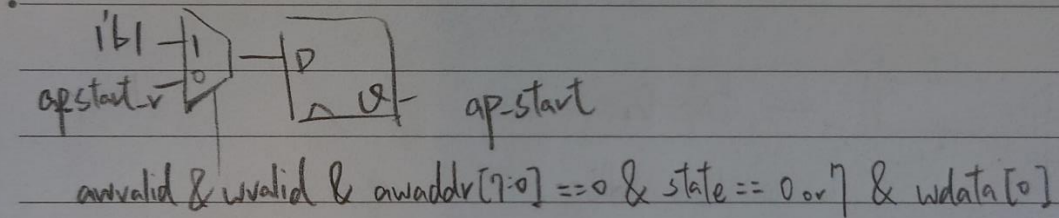 1'b1
1
0
ap_start_r
D
Q
ap_start
awvalid & wvalid & awaddr[7:0] == 0 & state == 0 or 7 & wdata[0]